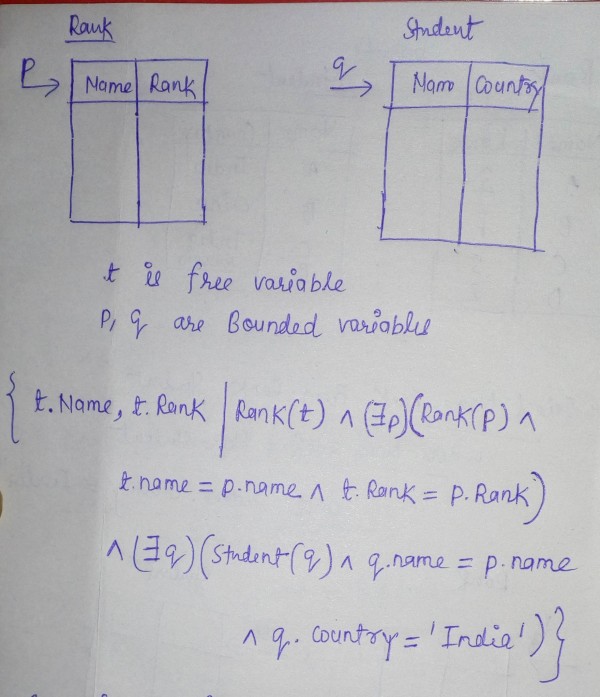 Rank Student
P q
Name Rank Nam Country
t is free variable
P, q are Bounded variables
{ t.Name, t.Rank | Rank(t) ∧ (∃p)(Rank(p) ∧
t.name = p.name ∧ t.Rank = p.Rank)
∧ (∃q)(Student(q) ∧ q.name = p.name
∧ q.country = 'India')}